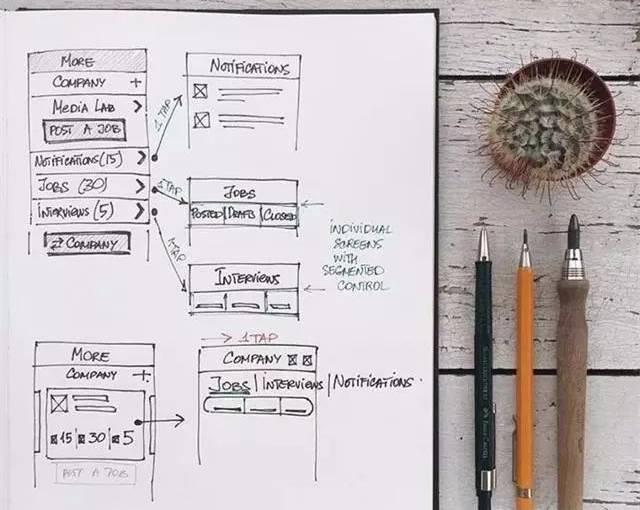 MORE
COMPANY +
MEDIA LAB >
POST A JOB
NOTIFICATIONS (15) >
JOBS (30) >
INTERVIEWS (5) >
⇄ COMPANY
1 TAP
NOTIFICATIONS
1 TAP
JOBS
POSTED | DRAFTS | CLOSED
1 TAP
INTERVIEWS
INDIVIDUAL
SCREENS
WITH
SEGMENTED
CONTROL
MORE
COMPANY +
15 30 5
POST A JOB
1 TAP
COMPANY
JOBS | INTERVIEWS | NOTIFICATIONS